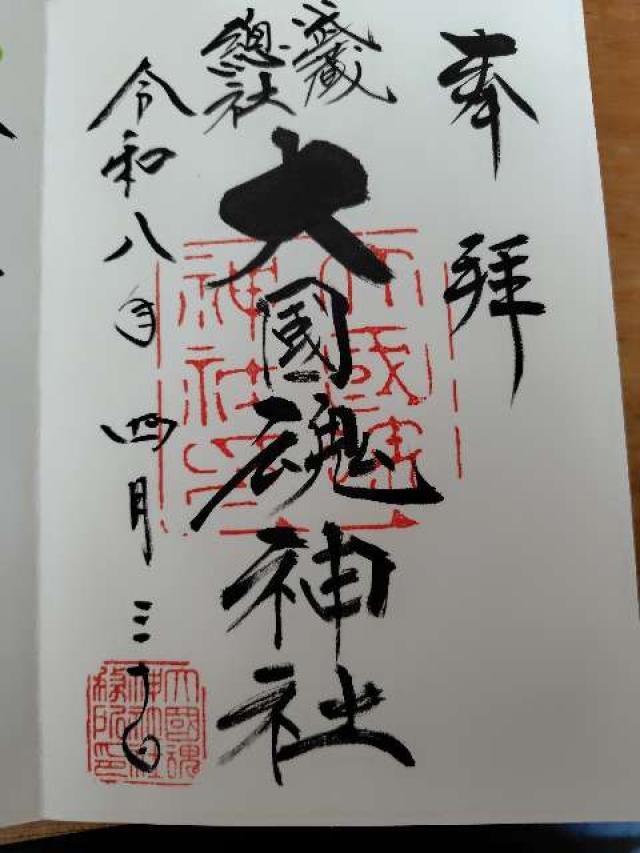 奉拝
武蔵
總社
大國魂神社
令和八年四月三十日
大國魂
神社印
大國魂
神社社
務所印